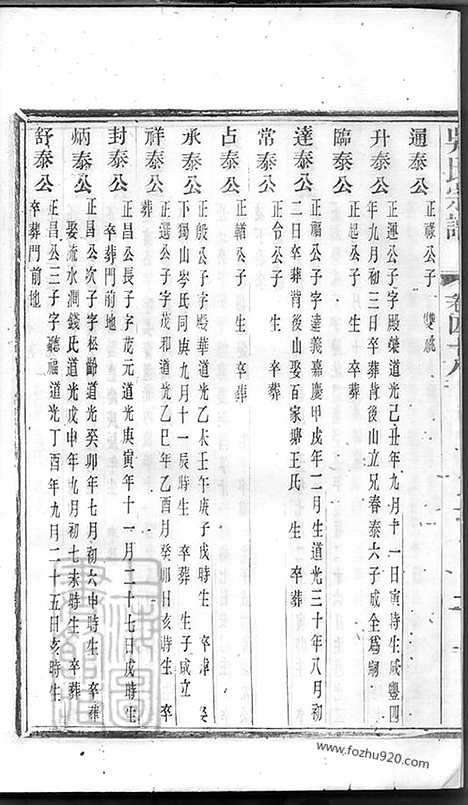 吳氏宗譜 卷四十八
通泰公
正祿公子 雙嗣
升泰公
正運公子字殿榮道光己丑年九月十一日寅時生咸豐四
年九月初三日卒葬背後山立兄春泰六子成全為嗣
臨泰公
正起公子 生 卒葬
達泰公
正福公子字達義嘉慶甲戌年二月生道光三十年八月初
二日卒葬背後山娶百家塘王氏 生 卒葬
常泰公
正令公子 生 卒葬
占泰公
正韜公子 生 卒葬
承泰公
正殷公子字殿華道光乙未壬午庚子戊時生 卒葬 娶
下獨山岑氏同庚九月十一辰時生 卒葬 生子成立
祥泰公
正選公子字茂和道光乙巳年乙酉月癸卯日亥時生 卒
葬
封泰公
正昌公長子字茂元道光庚寅年十一月二十七日戌時生
卒葬門前地
炳泰公
正昌公次子字松齡道光癸卯年七月初六申時生 卒葬
娶流水澗錢氏道光戊申年九月初七未時生 卒葬
舒泰公
正昌公三子字聽福道光丁酉年九月二十五日亥時生
卒葬門前地
www.fozhu920.com